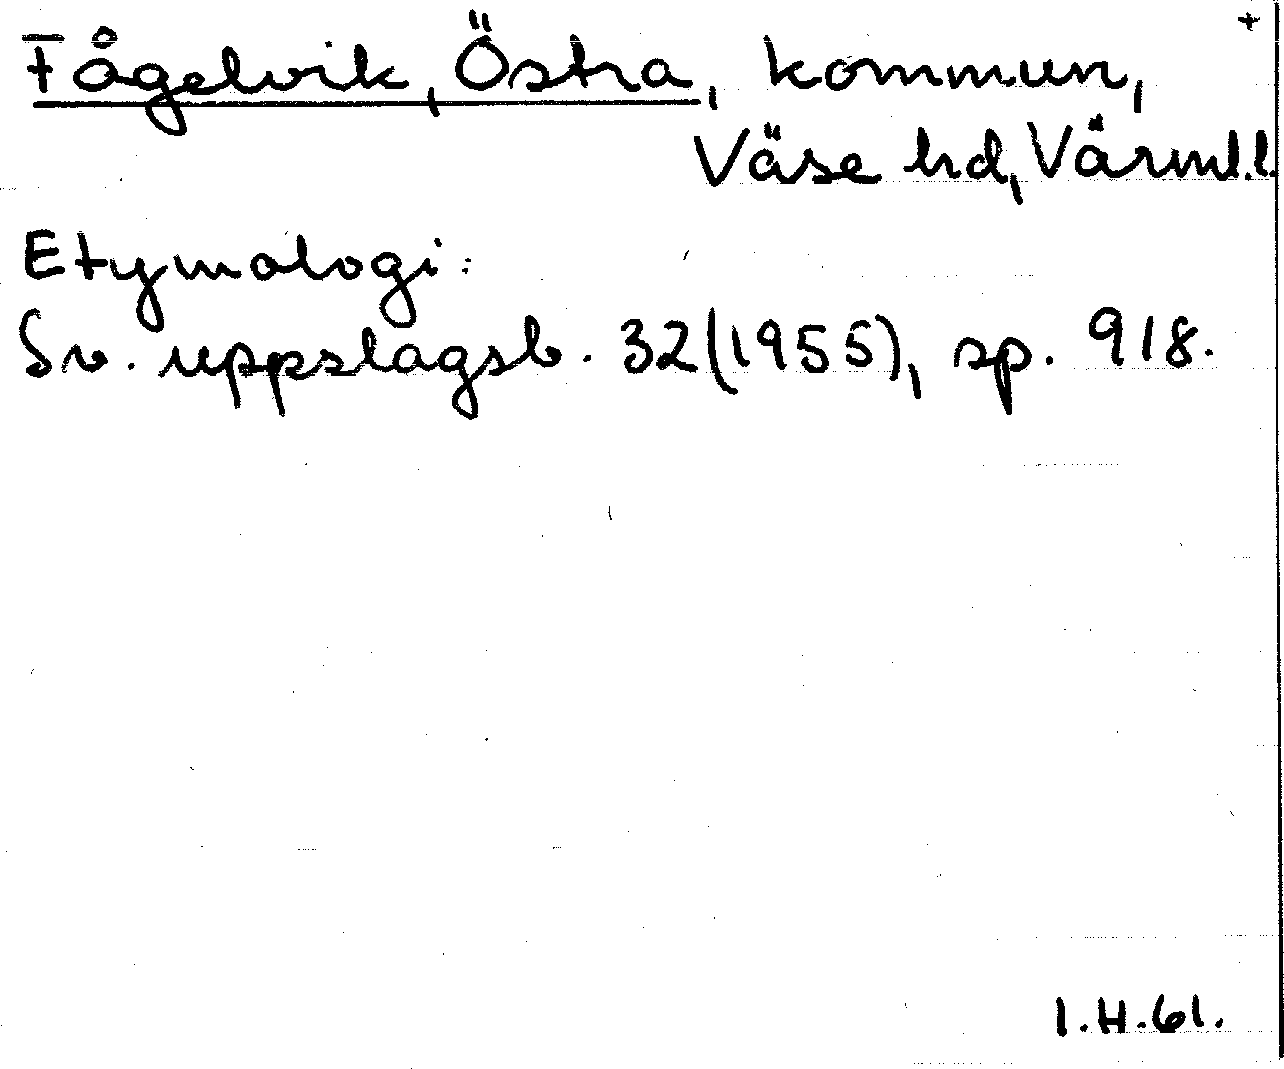 +
Fågelvik, Östra, kommun,
Väse hd, Värml.l.
Etymologi:
Sv. uppslagsb. 32(1955), sp. 918.
I.H.61.